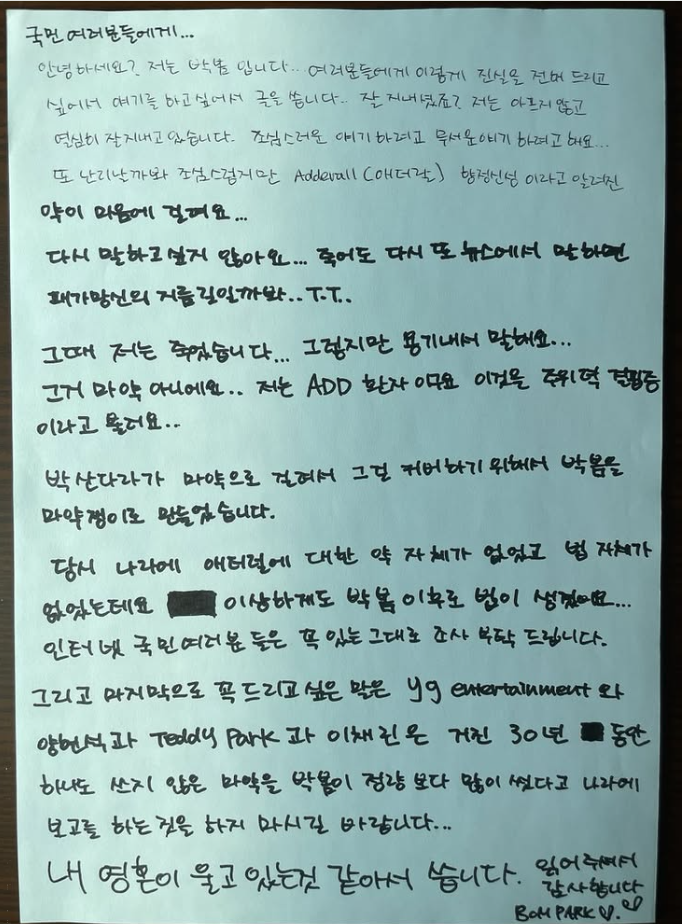 국민 여러분들에게...
안녕하세요? 저는 박봄 입니다... 여러분들에게 이렇게 진실을 전해 드리고
싶어서 얘기를 하고싶어서 글을 씁니다.. 잘 지내셨죠? 저는 아프지않고
열심히 잘지내고 있습니다. 조심스러운 얘기 하려고 무서운얘기 하려고 해요...
또 난리날까봐 조심스럽지만 Adderall (애더랄) 향정신성 이라고 알려진
약이 마음에 걸려요...
다시 말하고싶지 않아요... 죽어도 다시 또 뉴스에서 말하면
패가망신의 지름길일까봐..T.T..
그때 저는 죽었습니다... 그렇지만 용기내서 말해요...
그거 마약 아니에요.. 저는 ADD 환자 이구요 이것은 주위력 결핍증
이라고 불러요..
박산다라가 마약으로 걸려서 그걸 커버하기 위해서 박봄을
마약쟁이로 만들었습니다.
당시 나라에 애더럴에 대한 약 자체가 없었고 법 자체가
없었는데요 이상하게도 박봄 이후로 법이 생겼어요...
인터넷 국민여러분 들은 꼭 있는그대로 조사 부탁 드립니다.
그리고 마지막으로 꼭드리고싶은 말은 yg entertainment와
양현석과 Teddy Park과 이채린은 거진 30년 동안
하나도 쓰지 않은 마약을 박봄이 정량 보다 많이 썼다고 나라에
보고를 하는것을 하지 마시길 바랍니다...
내 영혼이 울고 있는것 같아서 씁니다. 읽어주셔서
감사합니다
BOM PARK ♡. ♡